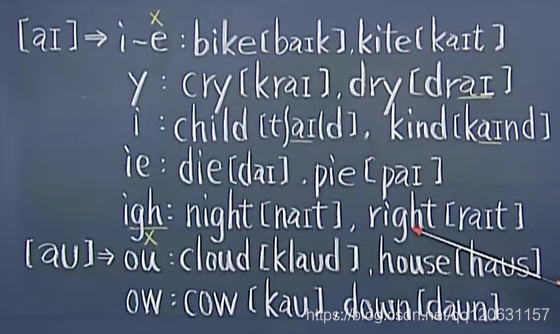 [aɪ]⇒ i-e : bike[baɪk], kite[kaɪt]
y : cry[kraɪ], dry[draɪ]
i : child[tʃaɪld], kind[kaɪnd]
ie : die[daɪ], pie[paɪ]
igh : night[naɪt], right[raɪt]
[aʊ]⇒ ou : cloud[klaʊd], house[haʊs]
ow : cow[kaʊ], down[daʊn]
https://blog.csdn.net/qq120631157